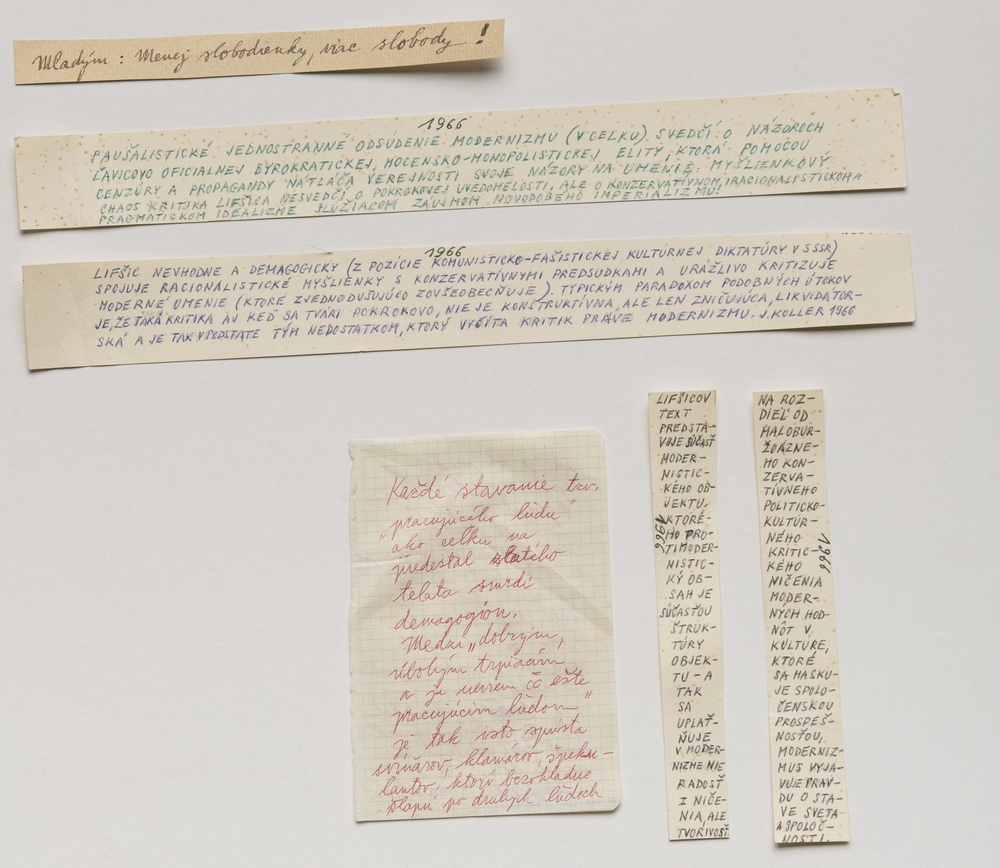 Mladým : Menej slobodienky, viac slobody !
1966
PAUŠALISTICKÉ JEDNOSTRANNÉ ODSÚDENIE MODERNIZMU (V CELKU) SVEDČÍ O NÁZOROCH
ĽAVICOVO OFICIALNEJ BYROKRATICKEJ, MOCENSKO-MONOPOLISTICKEJ ELITY, KTORÁ POMOCOU
CENZÚRY A PROPAGANDY NATLAČA VEREJNOSTI SVOJE NÁZORY NA UMENIE. MYŠLIENKOVÝ
CHAOS KRITIKA LIFŠICA NESVEDČÍ O POKROKOVEJ UVEDOMELOSTI, ALE O KONZERVATÍVNOM, IRACIONALISTICKOM A
PRAGMATICKOM IDEALIZME SLÚŽIACOM ZÁUJMOM NOVODOBÉHO IMPERIALIZMU.
1966
LIFŠIC NEVHODNE A DEMAGOGICKY (Z POZÍCIE KOMUNISTICKO-FAŠISTICKEJ KULTÚRNEJ DIKTATÚRY V SSSR)
SPOJUJE RACIONÁLISTICKÉ MYŠLIENKY S KONZERVATÍVNYMI PREDSUDKAMI A URÁŽLIVO KRITIZUJE
MODERNÉ UMENIE (KTORÉ ZJEDNODUŠUJÚCO ZOVŠEOBECŇUJE). TYPICKÝM PARADOXOM PODOBNÝCH ÚTOKOV
JE, ŽE TAKÁ KRITIKA AJ KEĎ SA TVÁRI POKROKOVO, NIE JE KONŠTRUKTÍVNA, ALE LEN ZNIČUJÚCA, LIKVIDÁTOR-
SKÁ A JE TAK V PODSTATE TÝM NEDOSTATKOM, KTORÝ VYČÍTA KRITIK PRÁVE MODERNIZMU. J. KOLLER 1966
Každé stavanie tzv.
„pracujúceho ľudu"
ako celku na
piedestal zlatého
teľaťa smrdí
demagógiou.
Medzi „dobrým,
úbohým trpiacim
a ja neviem čo ešte
pracujúcim ľudom"
je tak isto spústa
sviniarov, klamárov, špeku-
lantov, ktorí bezohľadne
šlapú po druhých ľuďoch
LIFŠICOV
TEXT
PREDSTA-
VUJE SÚČASŤ
MODER-
NISTIC-
KÉHO OB-
JEKTU,
KTORÉ-
HO PRO-
TIMODER-
NISTIC-
KÝ OB-
SAH JE
SÚČASŤOU
ŠTRUK-
TÚRY
OBJEK-
TU - A
TAK
SA
UPLAT-
ŇUJE
V MODER-
NIZME NIE
RADOSŤ
Z NIČE-
NIA, ALE
TVORIVOSŤ
1966
NA ROZ-
DIEL OD
MALOBUR-
ŽOÁZNE-
HO KON-
ZERVA-
TÍVNEHO
POLITICKO-
KULTÚR-
NÉHO
KRITIC-
KÉHO
NIČENIA
MODER-
NÝCH HOD-
NÔT V
KULTÚRE,
KTORÉ
SA MASKU-
JE SPOLO-
ČENSKOU
PROSPEŠ-
NOSŤOU,
MODERNIZ-
MUS VYJA-
VUJE PRAV-
DU O STA-
VE SVETA
A SPOLOČ-
NOSTI.
1966